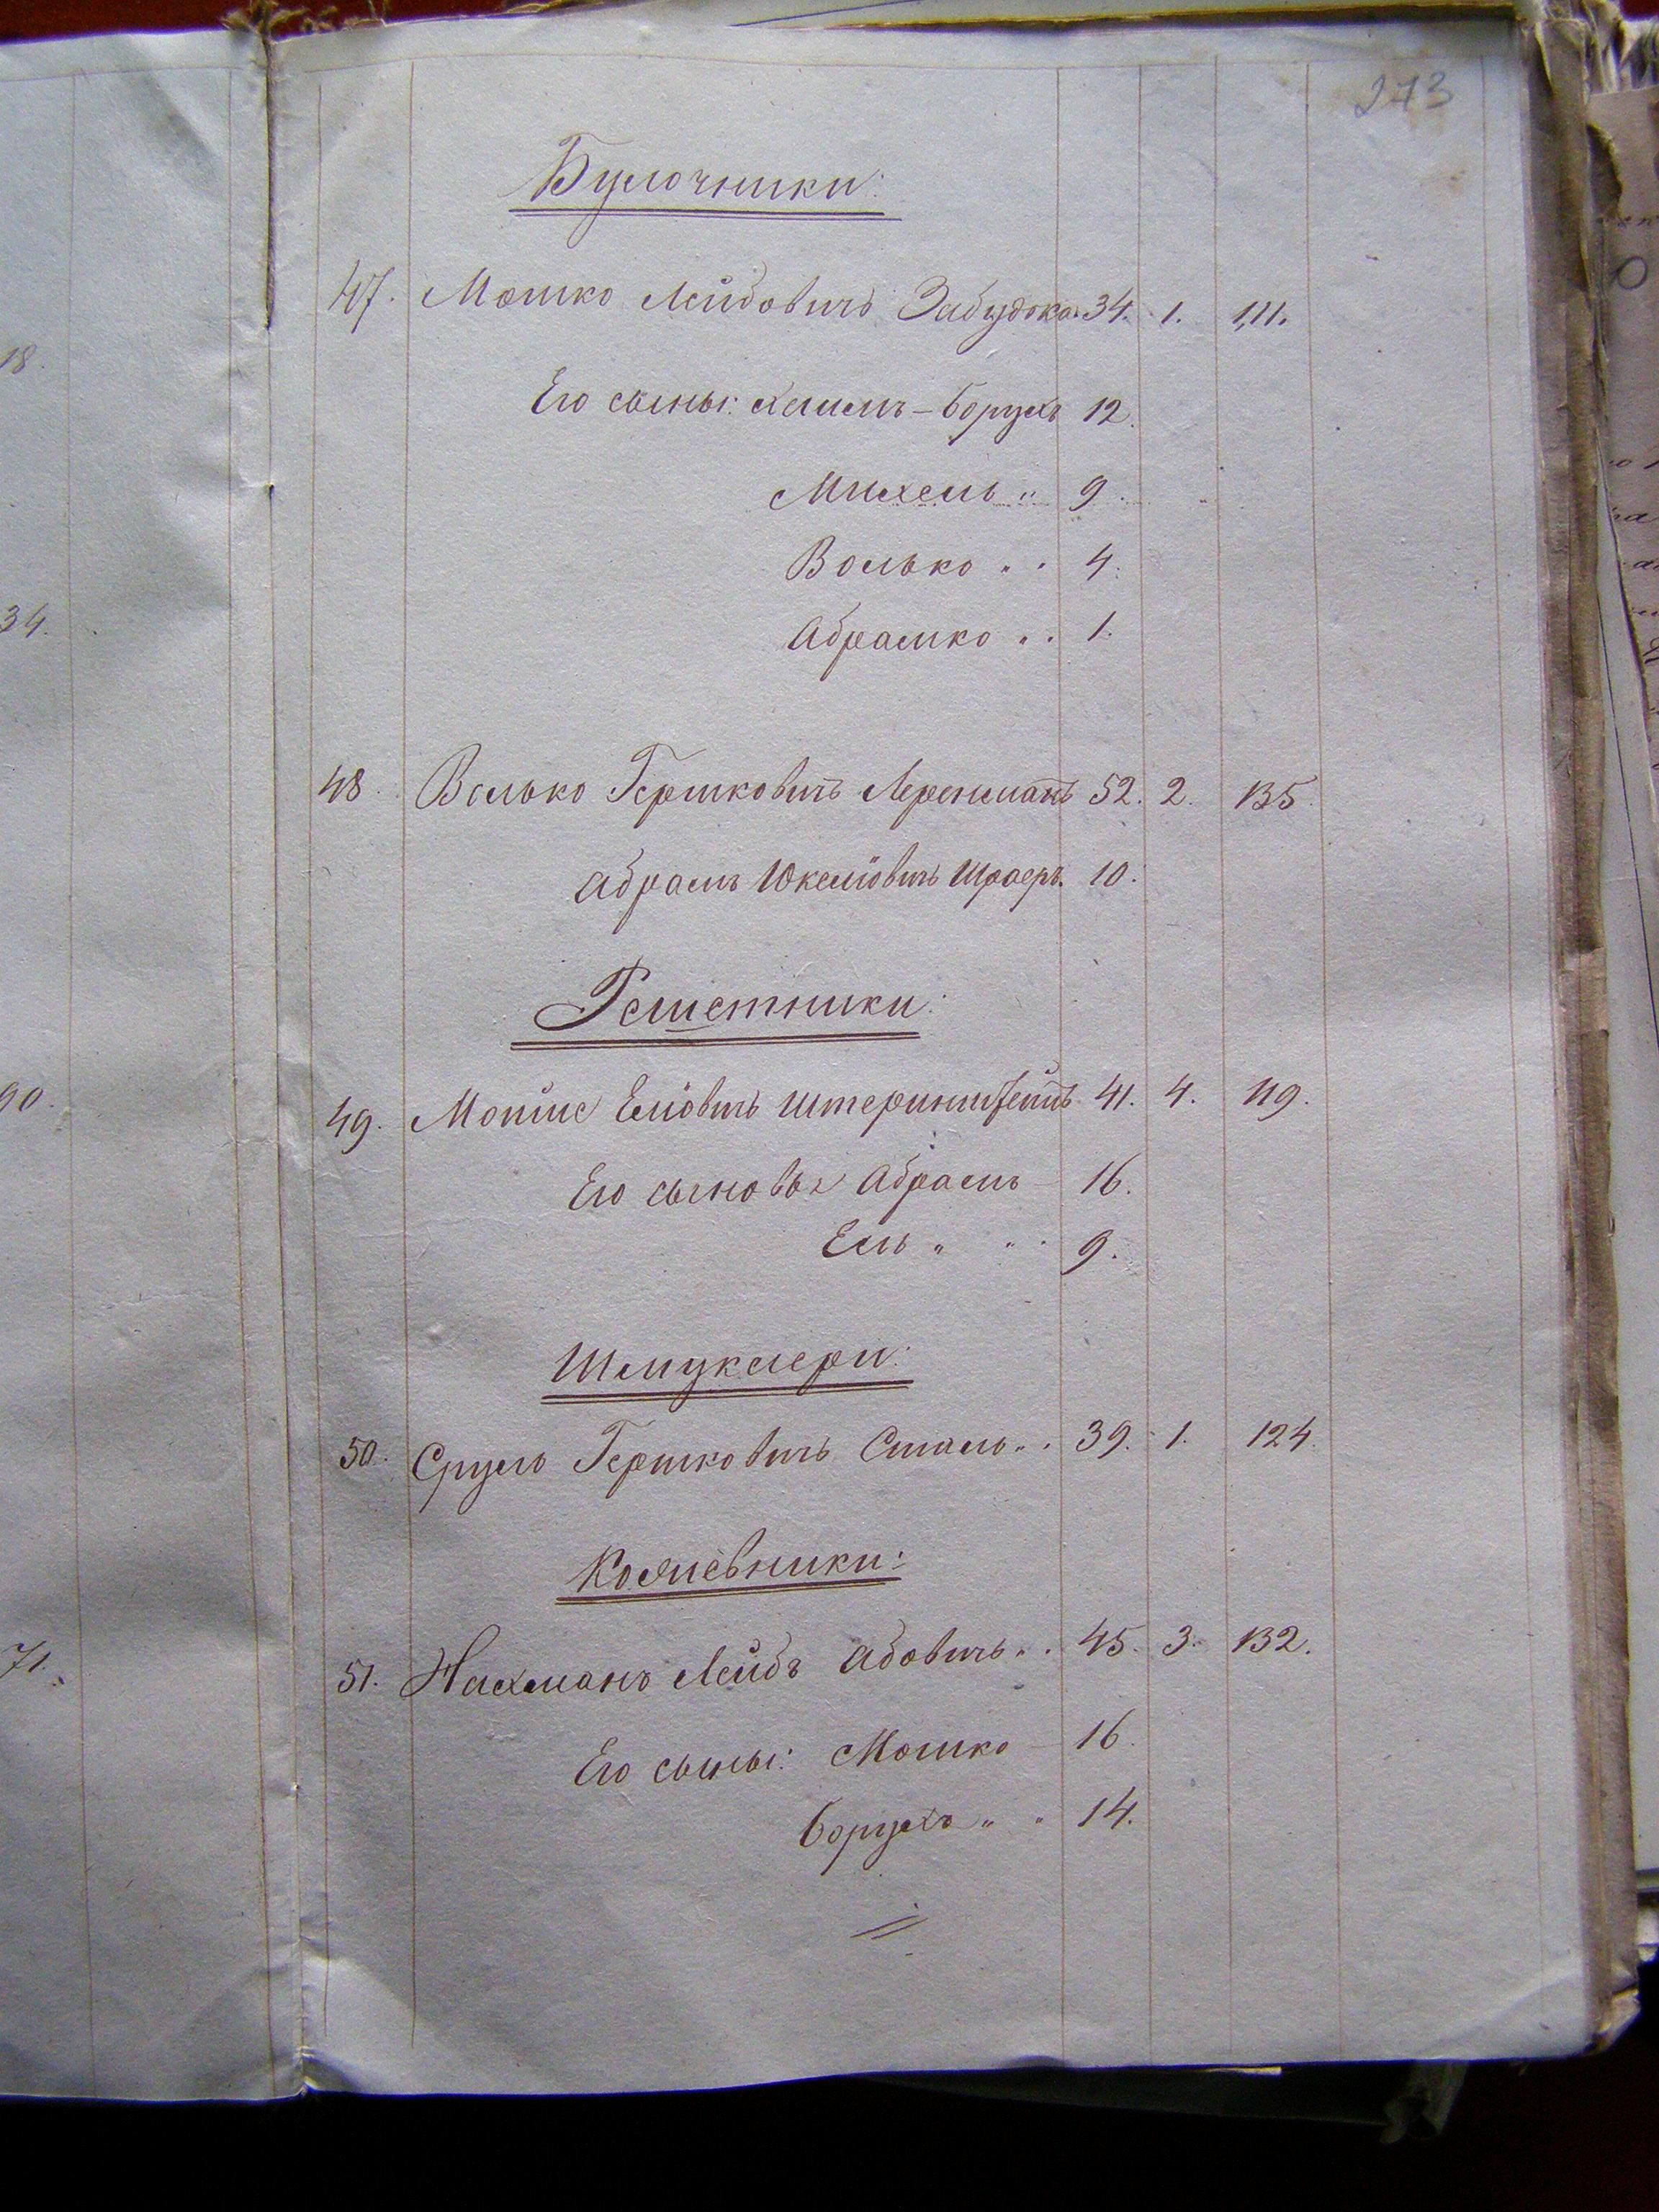 273
Булочники:
47. Мошко Лейбовичъ Забудока. 34. 1. 1,11.
Его сыны: Хаимъ-Борухъ 12.
Михель " 9.
Волько " " 4.
Абрамко " " 1.
48. Волько Гершковичъ Леренманъ 52. 2. 135.
Абрамъ Юкелiовичъ Шраеръ. 10.
Решетники:
49. Елiовичъ 41. 4. 119.
Его сыновья Абрамъ - 16.
Ель " " " 9.
Шмуклери:
50. Сруль Гершковичъ Сталь " . 39. 1. 124.
51. Нахманъ Лейбъ Абовичъ " . 45. 3. 132.
Его сыны: Мошко - 16.
Борухъ " " 14.
18.
34.
90.
71.